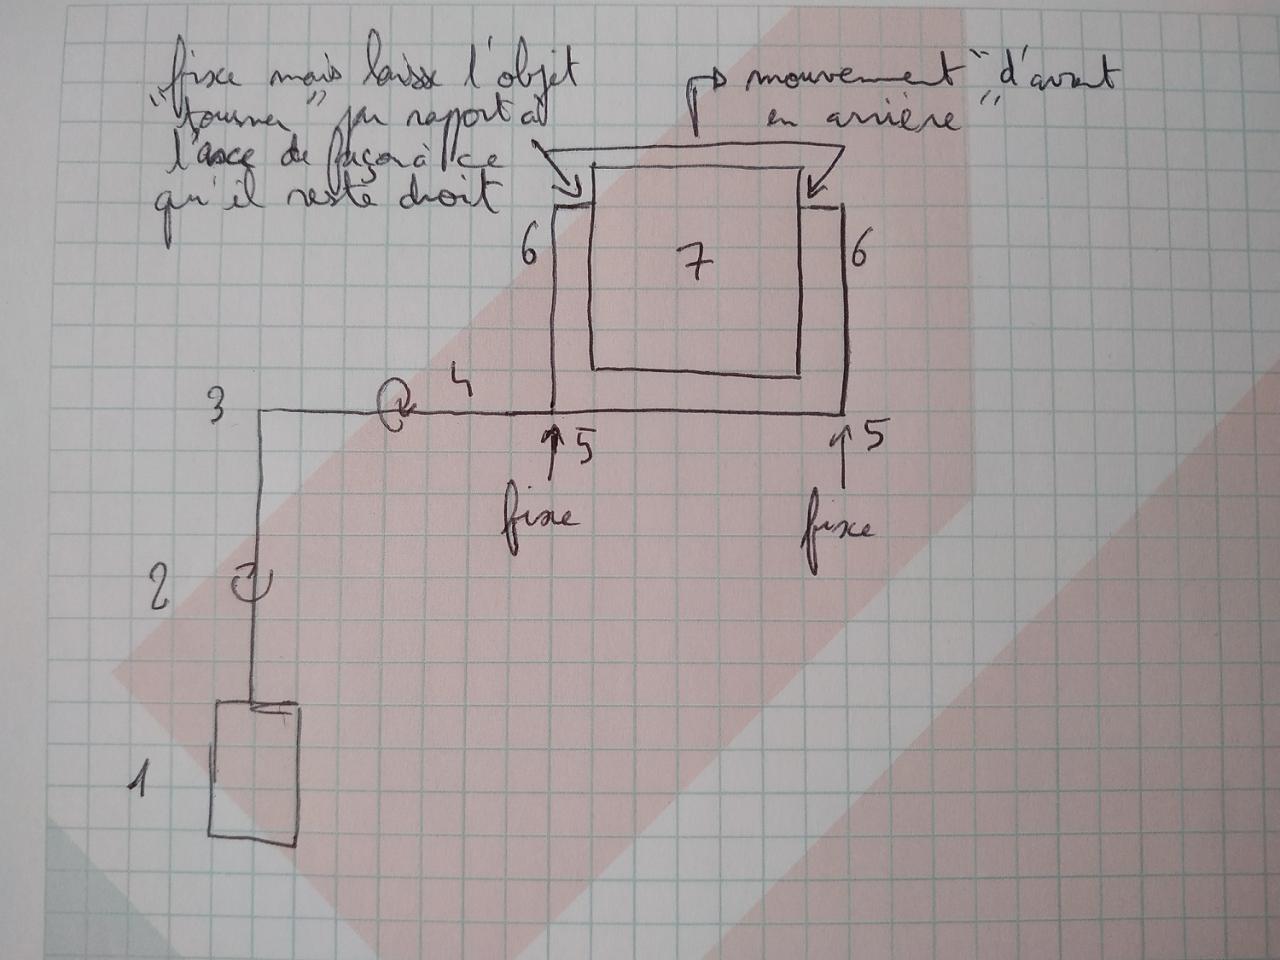 fixe mais laisse l'objet
"tourner" par rapport à
l'axe de façon à ce
qu'il reste droit
mouvement "d'avant
en arrière"
6
7
6
3
4
5
5
fixe
fixe
2
1